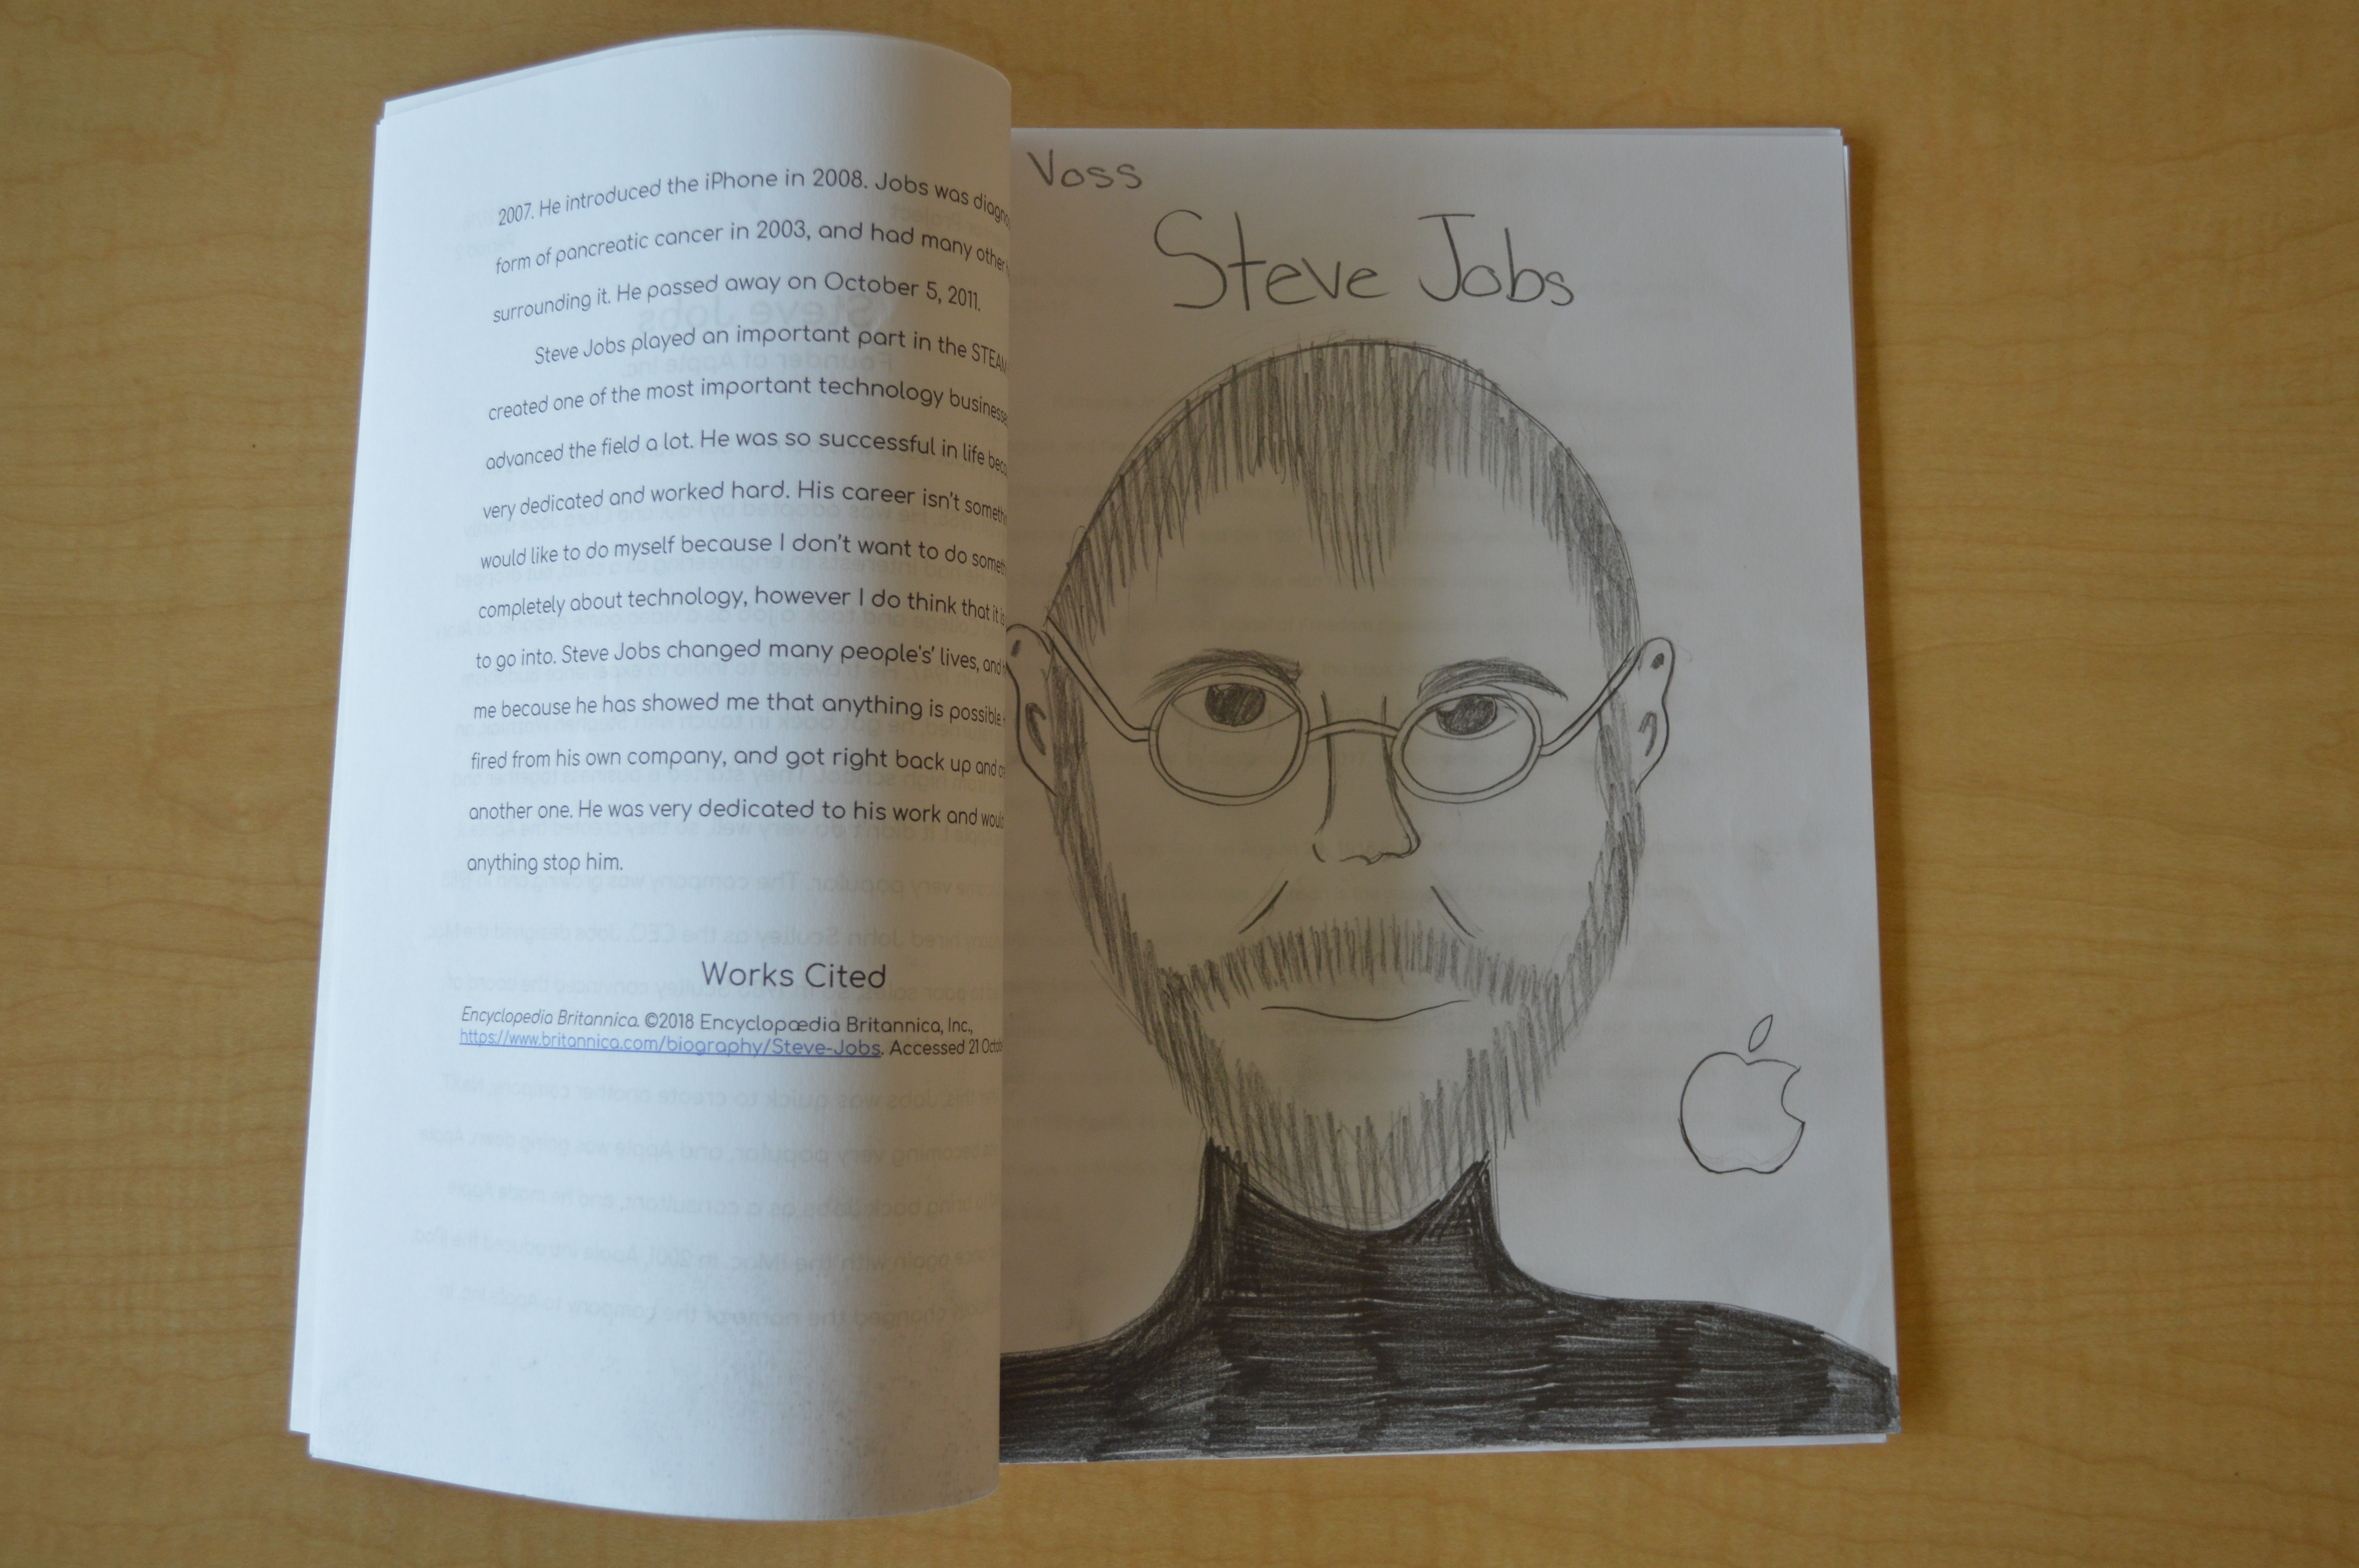 2007. He introduced the iPhone in 2008. Jobs was
form of pancreatic cancer in 2003, and had many other
surrounding it. He passed away on October 5, 2011.
Steve Jobs played an important part in the STEAM
created one of the most important technology
advanced the field a lot. He was so successful in life
very dedicated and worked hard. His career isn't
would like to do myself because I don't want to do
completely about technology, however I do think that it is
to go into. Steve Jobs changed many people's' lives, and
me because he has showed me that anything is possible
fired from his own company, and got right back up and
another one. He was very dedicated to his work and
anything stop him.
Works Cited
Encyclopedia Britannica. ©2018 Encyclopædia Britannica, Inc.,
https://www.britannica.com/biography/Steve-Jobs. Accessed 21
Voss
Steve Jobs